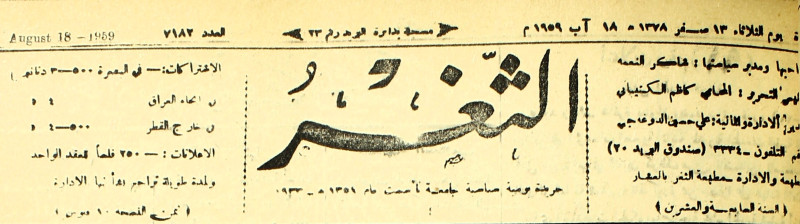 يوم الثلاثاء ١٣ صفر ١٣٧٨ ه ١٨ آب ١٩٥٩ م
مسجلة بدائرة البريد رقم ٢٣
العدد ٧١٨٢
August 18 - 1959
ومدير سياستها : شاكر النعمه
التحرير : المحامي كاظم
الادارة والمالية : علي حسين
التلفون - ٣٣٣٤ ( صندوق البريد ٢٠ )
والادارة - مطبعة الثغر بالعشار
( السنة السابعة والعشرين )
الثغر
جريدة يومية سياسية جامعة تأسست عام ١٣٥١ ه - ٩٣٣
الاشتراكات : - في البصرة ٥٠٠ - ٣ دنانير
انحاء العراق ٤ د
خارج القطر ٥٠٠ - ٤ د
الاعلانات : - ٢٥٠ فلساً للعقد الواحد
ولمدة طويلة تراجع بها الادارة
( ثمن النسخة ١٠ فلوس )